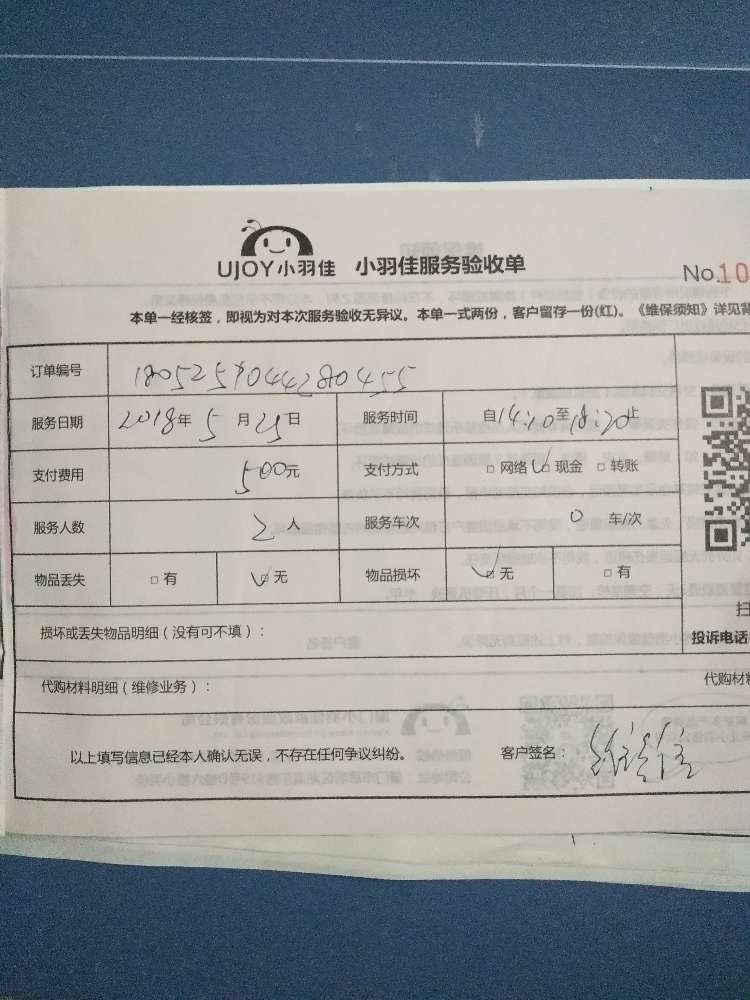 UJOY小羽佳 小羽佳服务验收单
No.10
本单一经核签，即视为对本次服务验收无异议。本单一式两份，客户留存一份(红)。《维保须知》详见背
订单编号 180525904428045​5
服务日期 2018年5月25日 服务时间 自14:20至18:20止
支付费用 500元 支付方式 □网络 □现金 □转账
服务人数 2人 服务车次 0 车/次
物品丢失 □有 □无 物品损坏 □无 □有
扫
损坏或丢失物品明细（没有可不填）：
投诉电话
代购材料明细（维修业务）：
代购材料
以上填写信息已经本人确认无误，不存在任何争议纠纷。 客户签名：